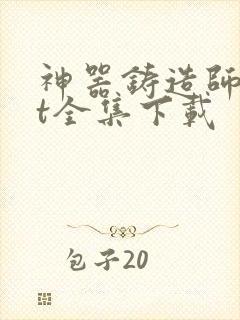 神器铸造師
t全集下載
包子20